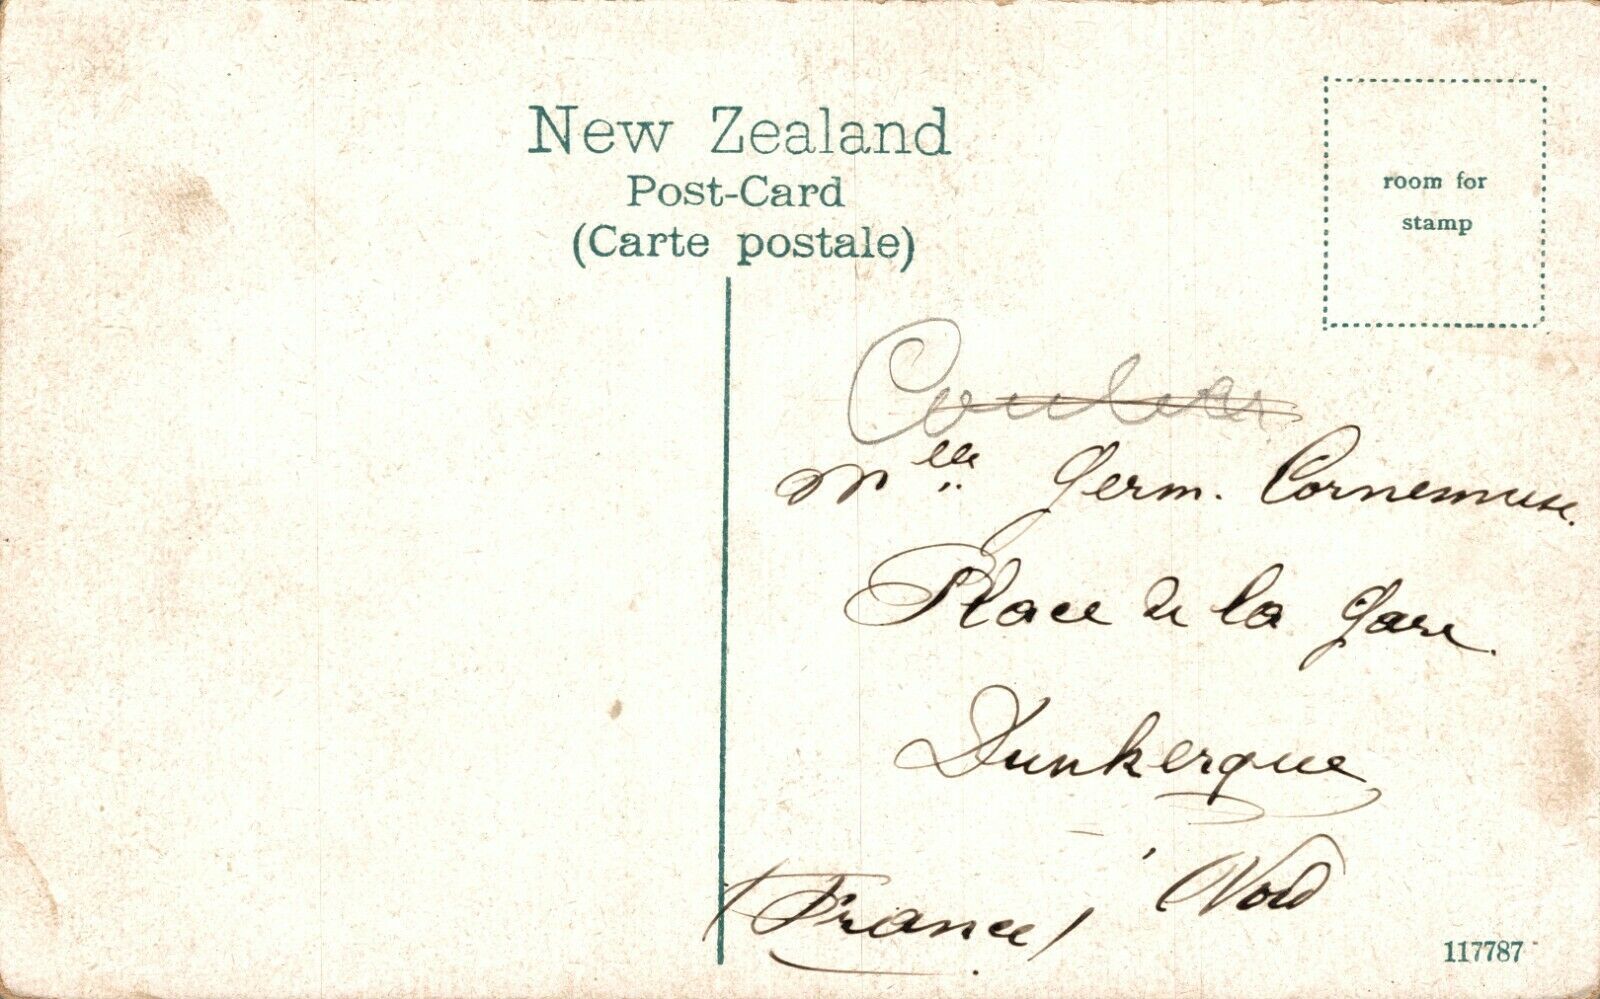 New Zealand
Post-Card
(Carte postale)
room for
stamp
Mlle Germ. Cornemuse.
Place de la Gare.
Dunkerque
Nord
(France)
117787